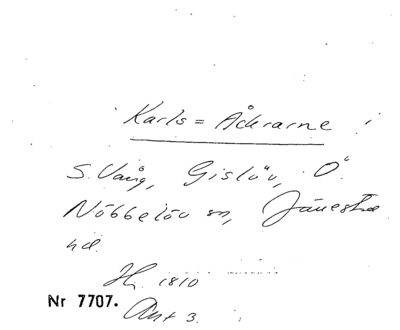 Karls=Åkrarne i
S. Vång, Gislöv, Ö.
Nöbbelöv sn, Järrestad
hd.
Hj. 1810
Nr 7707.
Akt 3.